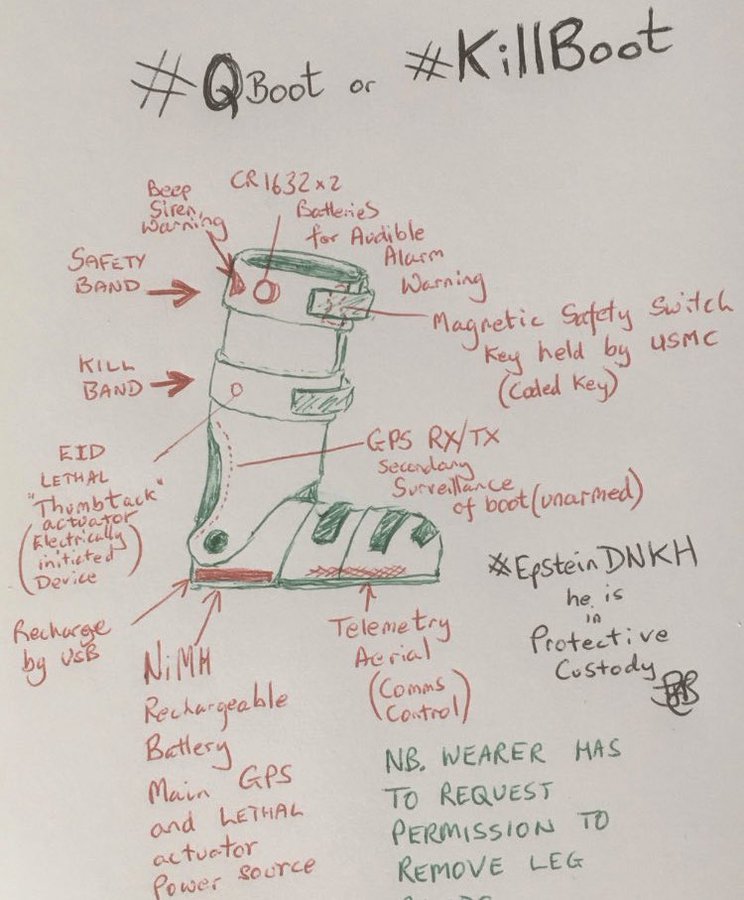 #QBoot or #KillBoot
Beep
Siren,
Warning
CR1632x2
Batteries
for Audible
Alarm
Warning
SAFETY
BAND
Magnetic Safety Switch
Key held by USMC
(Coded Key)
KILL
BAND
EID
LETHAL
"Thumbtack"
actuator
(Electrically
initiated
Device)
GPS RX/TX
Secondary
Surveillance
of boot (unarmed)
#EpsteinDNKH
he is
in
Protective
Custody
Recharge
by USB
NiMH
Rechargeable
Battery
Main GPS
and LETHAL
actuator
Power source
Telemetry
Aerial
(Comms
Control)
NB. WEARER HAS
TO REQUEST
PERMISSION TO
REMOVE LEG